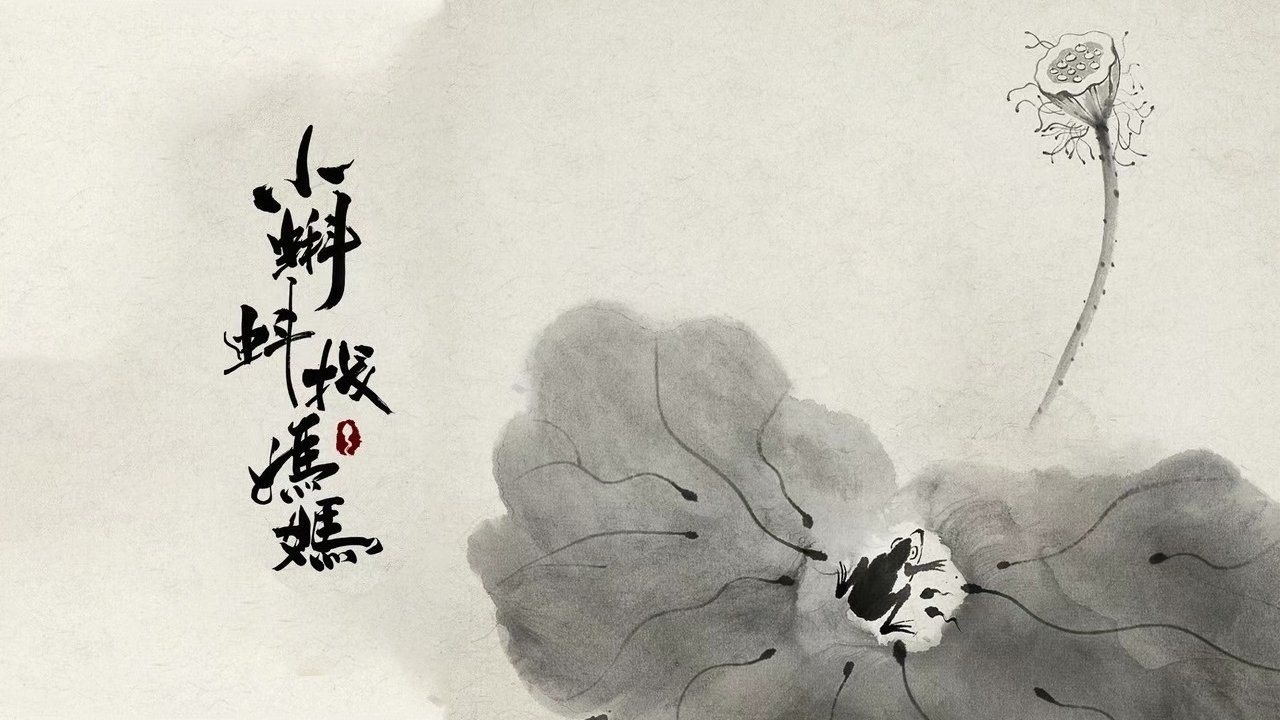 小蝌蚪找媽媽